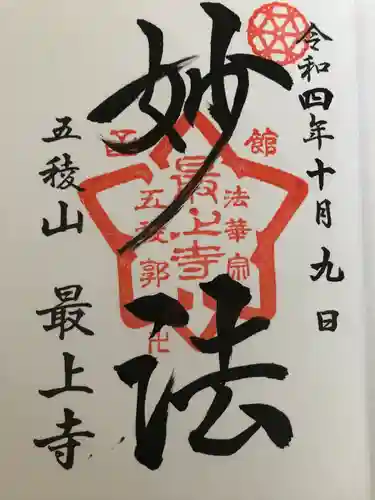 令和四年十月九日
妙法
五稜山 最上寺
函館
法華宗
最上寺
五稜郭
卍